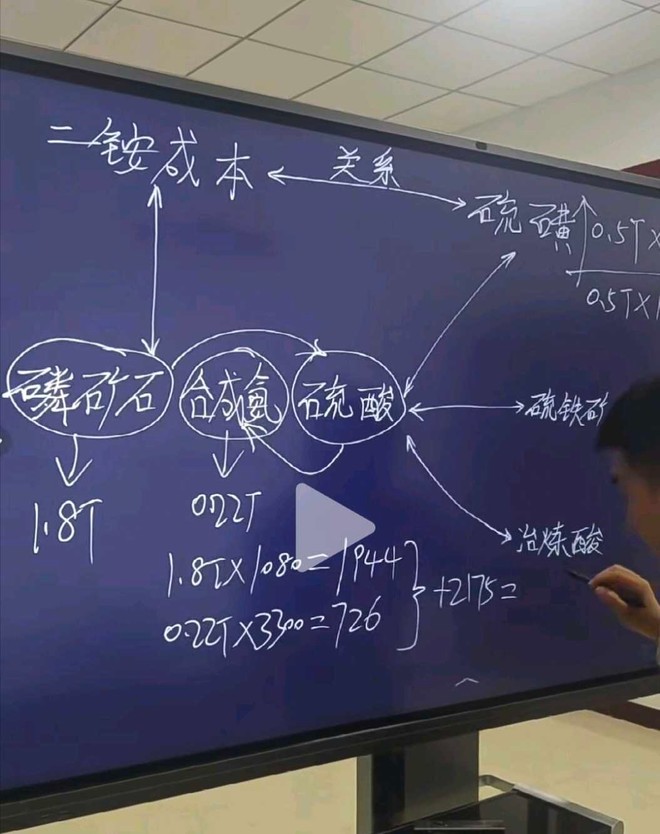 二铵成本
关系
硫磺
0.5T×
0.5T×1
磷矿石
合成氨
硫酸
硫铁矿
1.8T
0.22T
冶炼酸
1.8T×1080=1944
0.22T×3300=726
+2175=